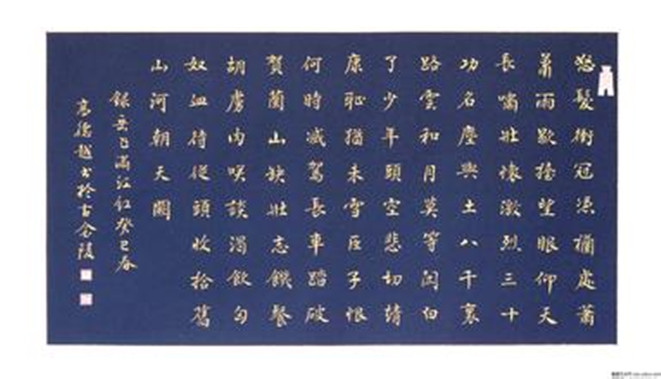 怒髮衝冠凭襴處蕭
蕭雨歇擡望眼仰天
長嘯壯懷激烈三十
功名塵與土八千裏
路雲和月莫等闲白
了少年頭空悲切靖
康恥猶未雪臣子恨
何時滅駕長車踏破
賀蘭山缺壯志饑餐
胡虜肉咲談渴飲匈
奴血待從頭收拾舊
山河朝天闕
錄岳飞滿江紅癸巳春
高德越书於古金陵